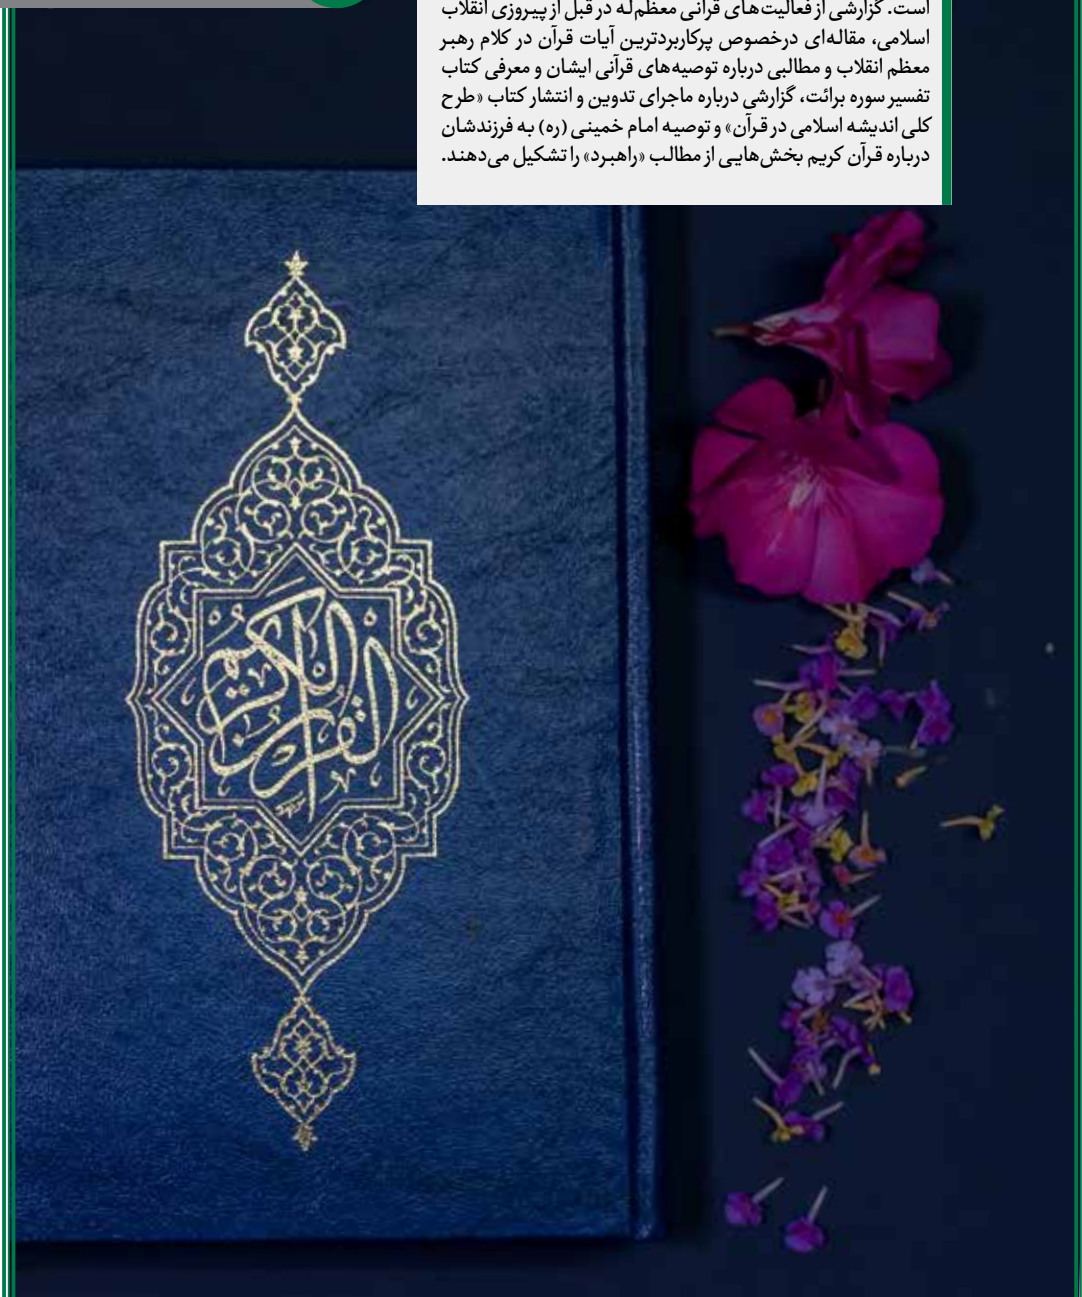 است. گزارشی از فعالیت‌های قرآنی معظم‌له در قبل از پیروزی انقلاب
اسلامی، مقاله‌ای درخصوص پرکاربردترین آیات قرآن در کلام رهبر
معظم انقلاب و مطالبی درباره توصیه‌های قرآنی ایشان و معرفی کتاب
تفسیر سوره برائت، گزارشی درباره ماجرای تدوین و انتشار کتاب «طرح
کلی اندیشه اسلامی در قرآن» و توصیه امام خمینی (ره) به فرزندشان
درباره قرآن کریم بخش‌هایی از مطالب «راهبرد» را تشکیل می‌دهند.
القرآن الکریم